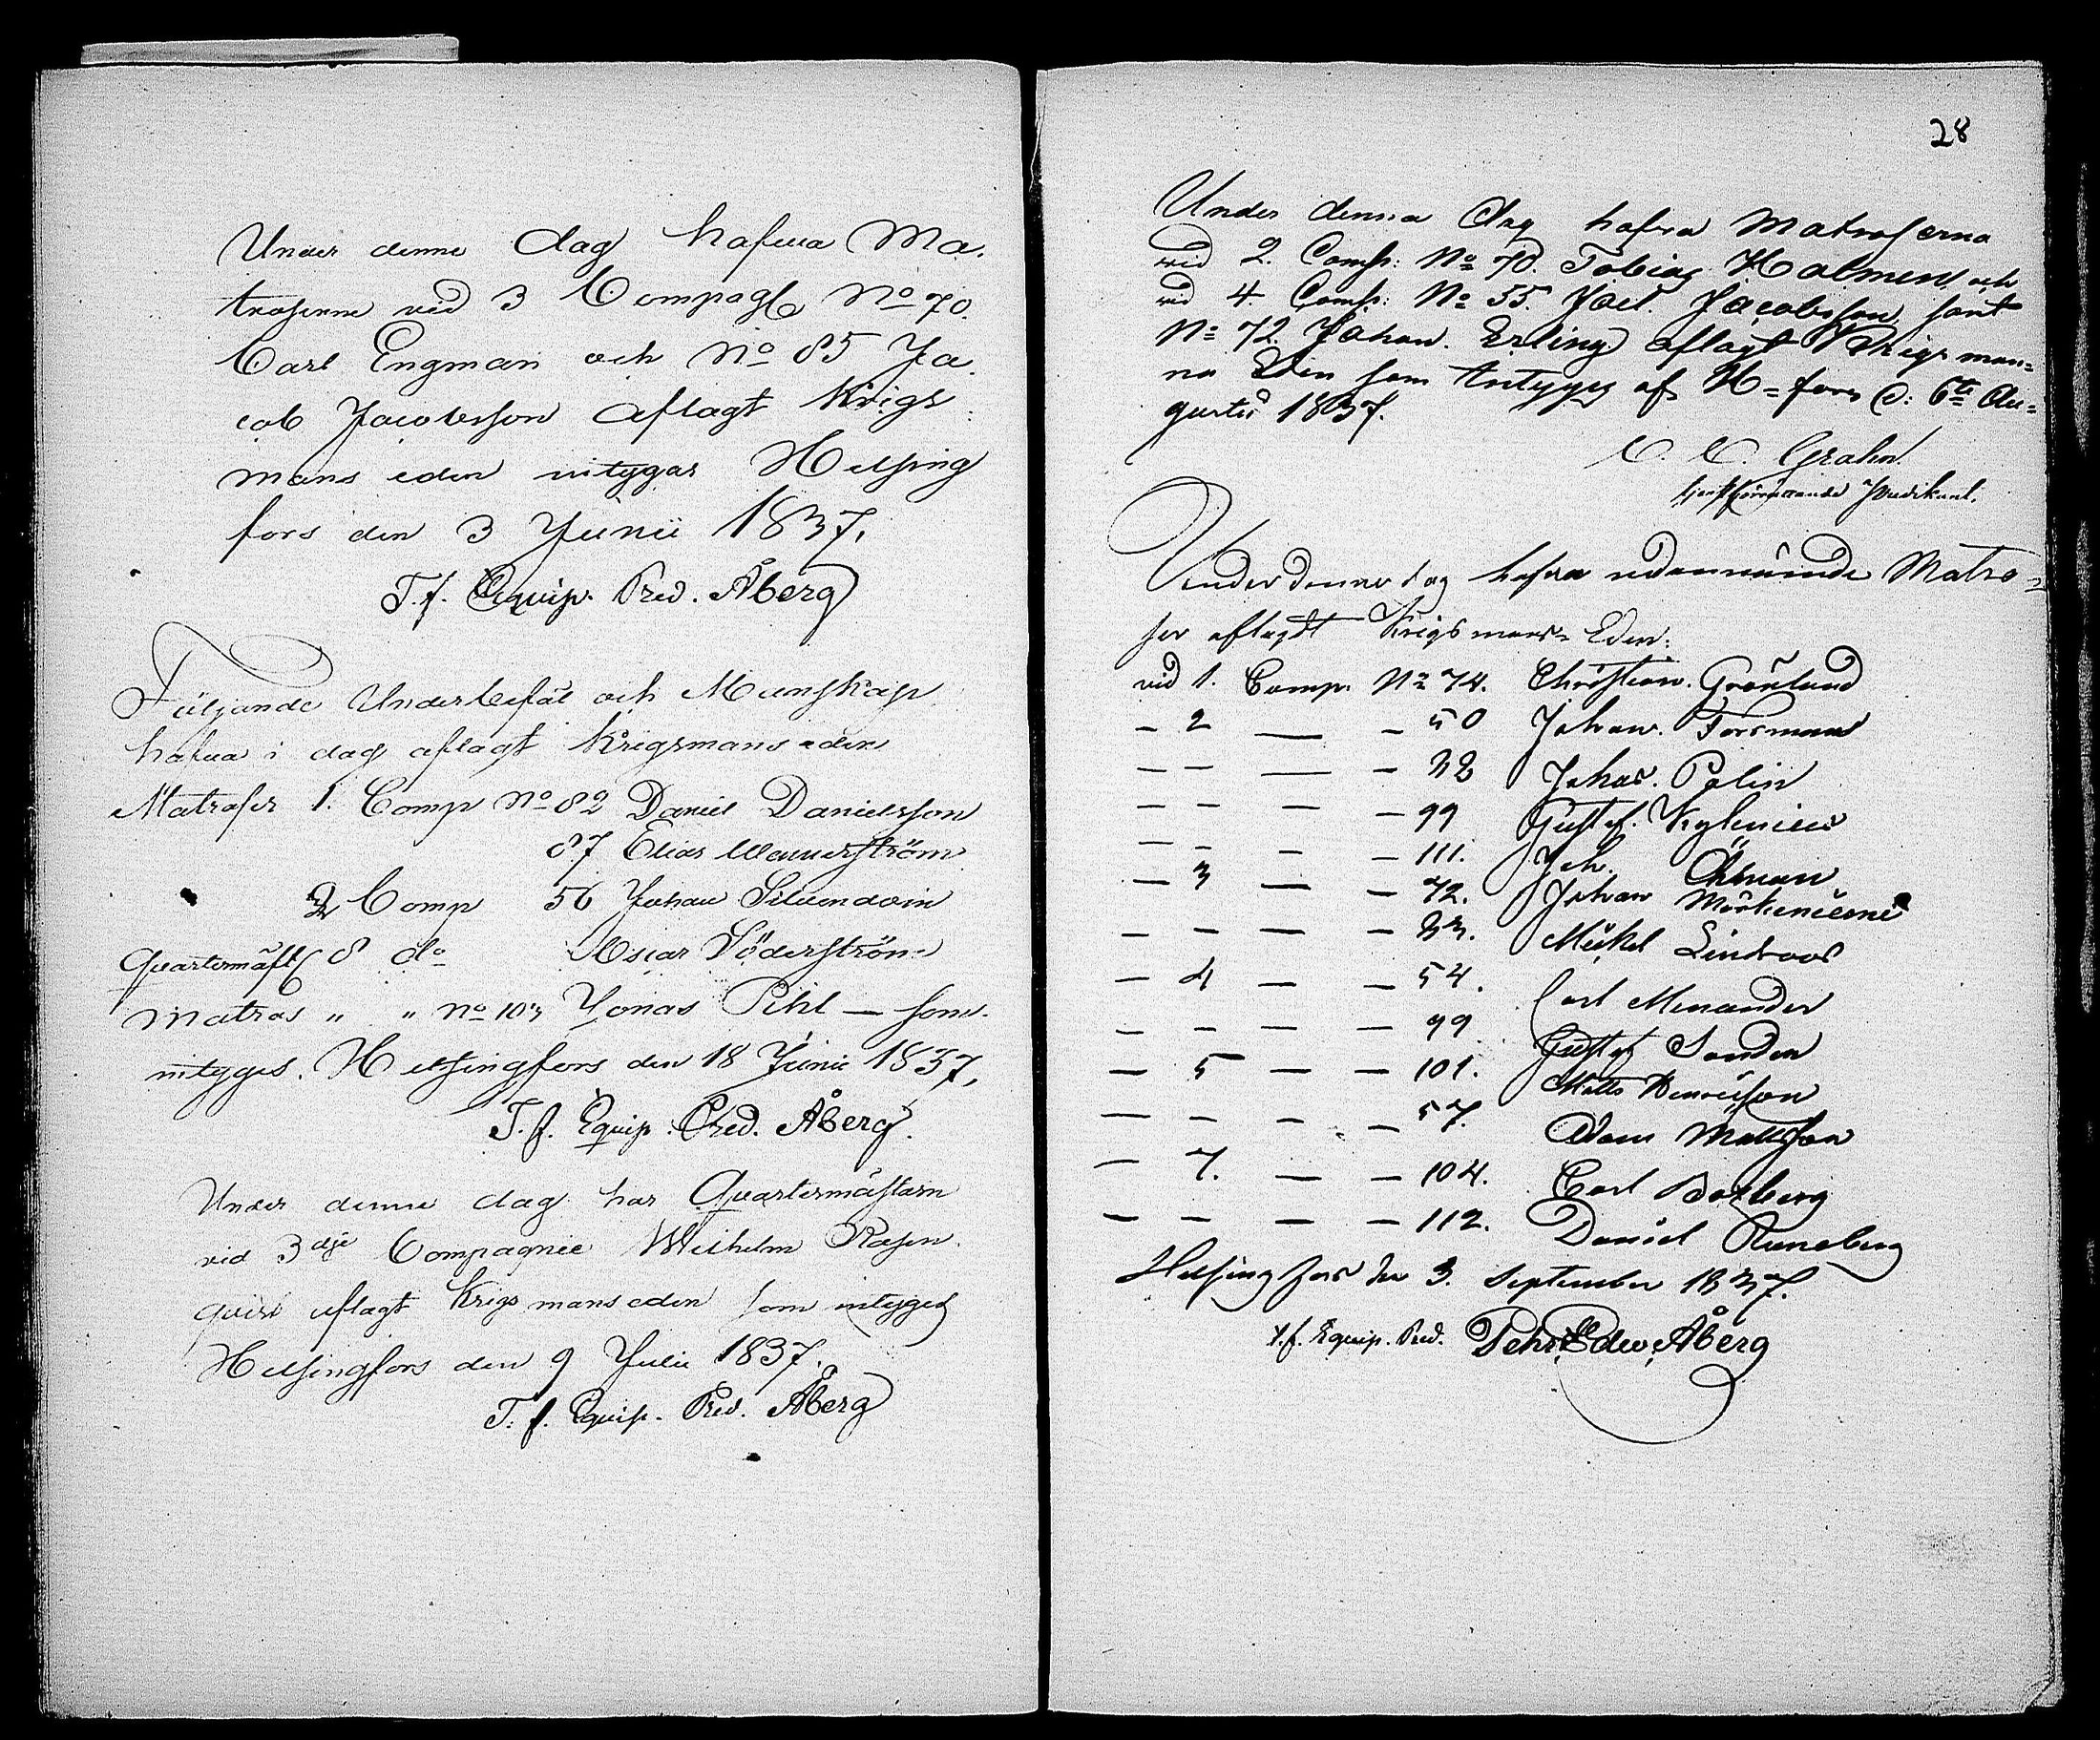 Under denne dag hafwa Ma-
troserne vid 3 Compag: No 70.
Carl Engman och No 85 Ja-
cob Jacobsson aflagt Krigs-
mans eden intygar Helsing
fors den 3 Junii 1837.
T. f. Equip. Pred. Åberg
Följande Underbefäl och Manskap
hafwa i dag aflagt Krigsmans eden
Matroser 1. Comp No 82 Daniel Danielsson
87 Elias Wennerström
2 Comp 56 Johan
Quartermäst 8 do Oscar Söderström
Matros " " No 103 Jonas Pihl — som
intygas. Helsingfors den 18 Junii 1837.
T. f. Equip. Pred. Åberg.
Under denne dag har Quartermästarn
vid 3dje Compagnie Wilhelm Rosen-
quist aflagt Krigsmanseden som intygas
Helsingfors den 9 Julii 1837.
T. f. Equip. Pred. Åberg
28
Under denna dag hafva Matroserna
vid 2. Comp: No 70. Tobias Holmen, och
vid 4 Comp: No 55. Joel. Jacobsson, samt
No 72. Johan. Erling aflagt Krigsman-
na Eden som intygas af H-fors d: 6te Au-
gusti 1837.
C. C. Grahn.
tjenstförrättande Predikant.
Under denna dag hafva nedannämde Matro-
ser aflagdt Krigsmans-Eden:
vid 1. Comp. No 74. Christian. Grönlund
— 2 — — 50 Johan. Forsman
— — — — 32 Johan. Polin
— — — — 99 Gustaf.
— — — — 111. Joh. Öhman
— 3 — — 72. Johan
— — — — 33. Mickel Lindroos
— 4 — — 54. Carl Menander
— — — — 99 Gustaf Sanden
— 5 — — 101. Matts Henricsson
— — — — 57. Adam Mattsson
— 7. — — 104. Carl Boxberg
— — — — 112. Daniel Runeberg
Helsingfors den 3. September 1837.
t. f. Equip. Pred. Pehr Edw. Åberg